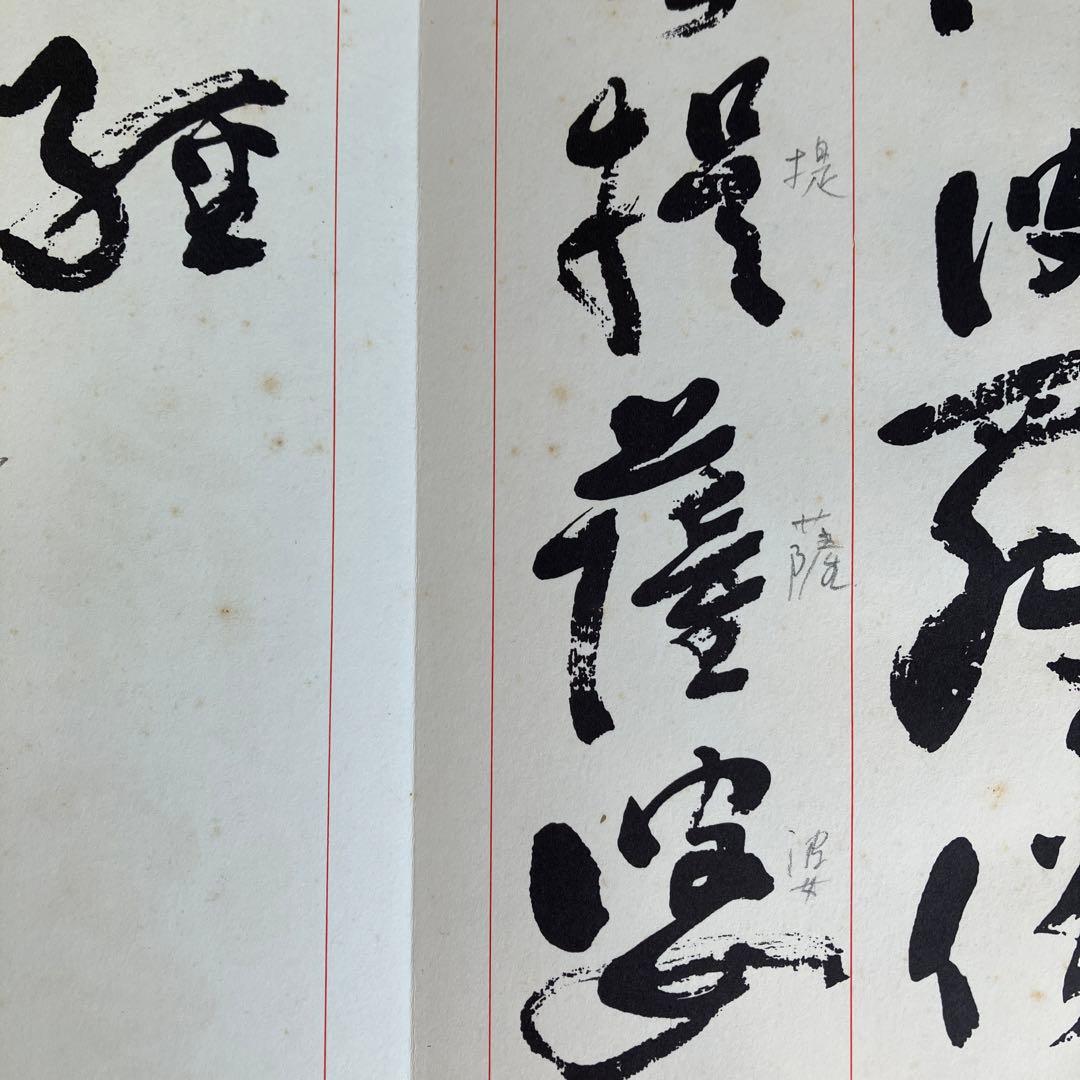 波羅僧
提薩婆
提
薩
婆
經